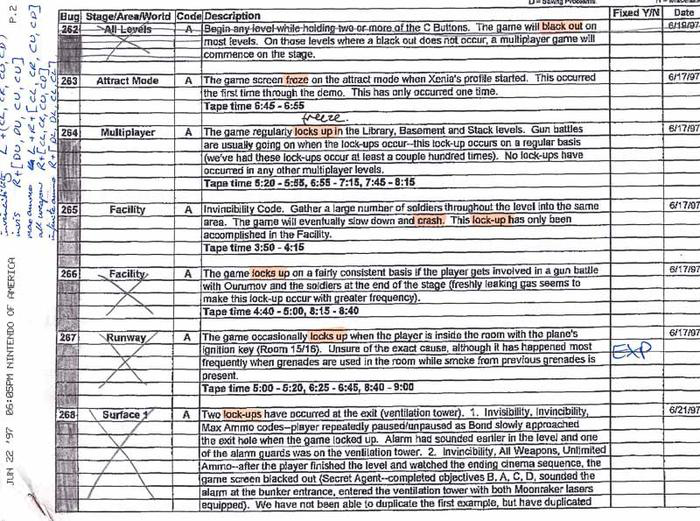 P.2
Bug Stage/Area/World Code Description Fixed Y/N
262 All Levels A Begin any level while holding two or more of the C Buttons. The game will black out on 6/19/97
most levels. On those levels where a black out does not occur, a multiplayer game will
commence on the stage.
263 Attract Mode A The game screen froze on the attract mode when Xenia's profile started. This occurred 6/17/97
the first time through the demo. This has only occurred one time.
Tape time 6:45 - 6:55
freeze.
264 Multiplayer A The game regularly locks up in the Library, Basement and Stack levels. Gun battles 6/17/97
are usually going on when the lock-ups occur--this lock-up occurs on a regular basis
(we've had these lock-ups occur at least a couple hundred times). No lock-ups have
occurred in any other multiplayer levels.
Tape time 5:20 - 5:55, 6:55 - 7:15, 7:45 - 8:15
265 Facility A Invincibility Code. Gather a large number of soldiers throughout the level into the same 6/17/97
area. The game will eventually slow down and crash. This lock-up has only been
accomplished in the Facility.
Tape time 3:50 - 4:15
266 Facility A The game locks up on a fairly consistent basis if the player gets involved in a gun battle 6/17/97
with Ourumov and the soldiers at the end of the stage (freshly leaking gas seems to
make this lock-up occur with greater frequency).
Tape time 4:40 - 5:00, 8:15 - 8:40
267 Runway A The game occasionally locks up when the player is inside the room with the plane's 6/17/97
ignition key (Room 15/16). Unsure of the exact cause, although it has happened most EXP
frequently when grenades are used in the room while smoke from previous grenades is
present.
Tape time 5:00 - 5:20, 6:25 - 6:45, 8:40 - 9:00
268 Surface 1 A Two lock-ups have occurred at the exit (ventilation tower). 1. Invisibility, Invincibility, 6/21/97
Max Ammo codes--player repeatedly paused/unpaused as Bond slowly approached
the exit hole when the game locked up. Alarm had sounded earlier in the level and one
of the alarm guards was on the ventilation tower. 2. Invincibility, All Weapons, Unlimited
Ammo--after the player finished the level and watched the ending cinema sequence, the
game screen blacked out (Secret Agent--completed objectives B, A, C, D, sounded the
alarm at the bunker entrance, entered the ventilation tower with both Moonraker lasers
equipped). We have not been able to duplicate the first example, but have duplicated
JUN 22 '97 06:05PM NINTENDO OF AMERICA